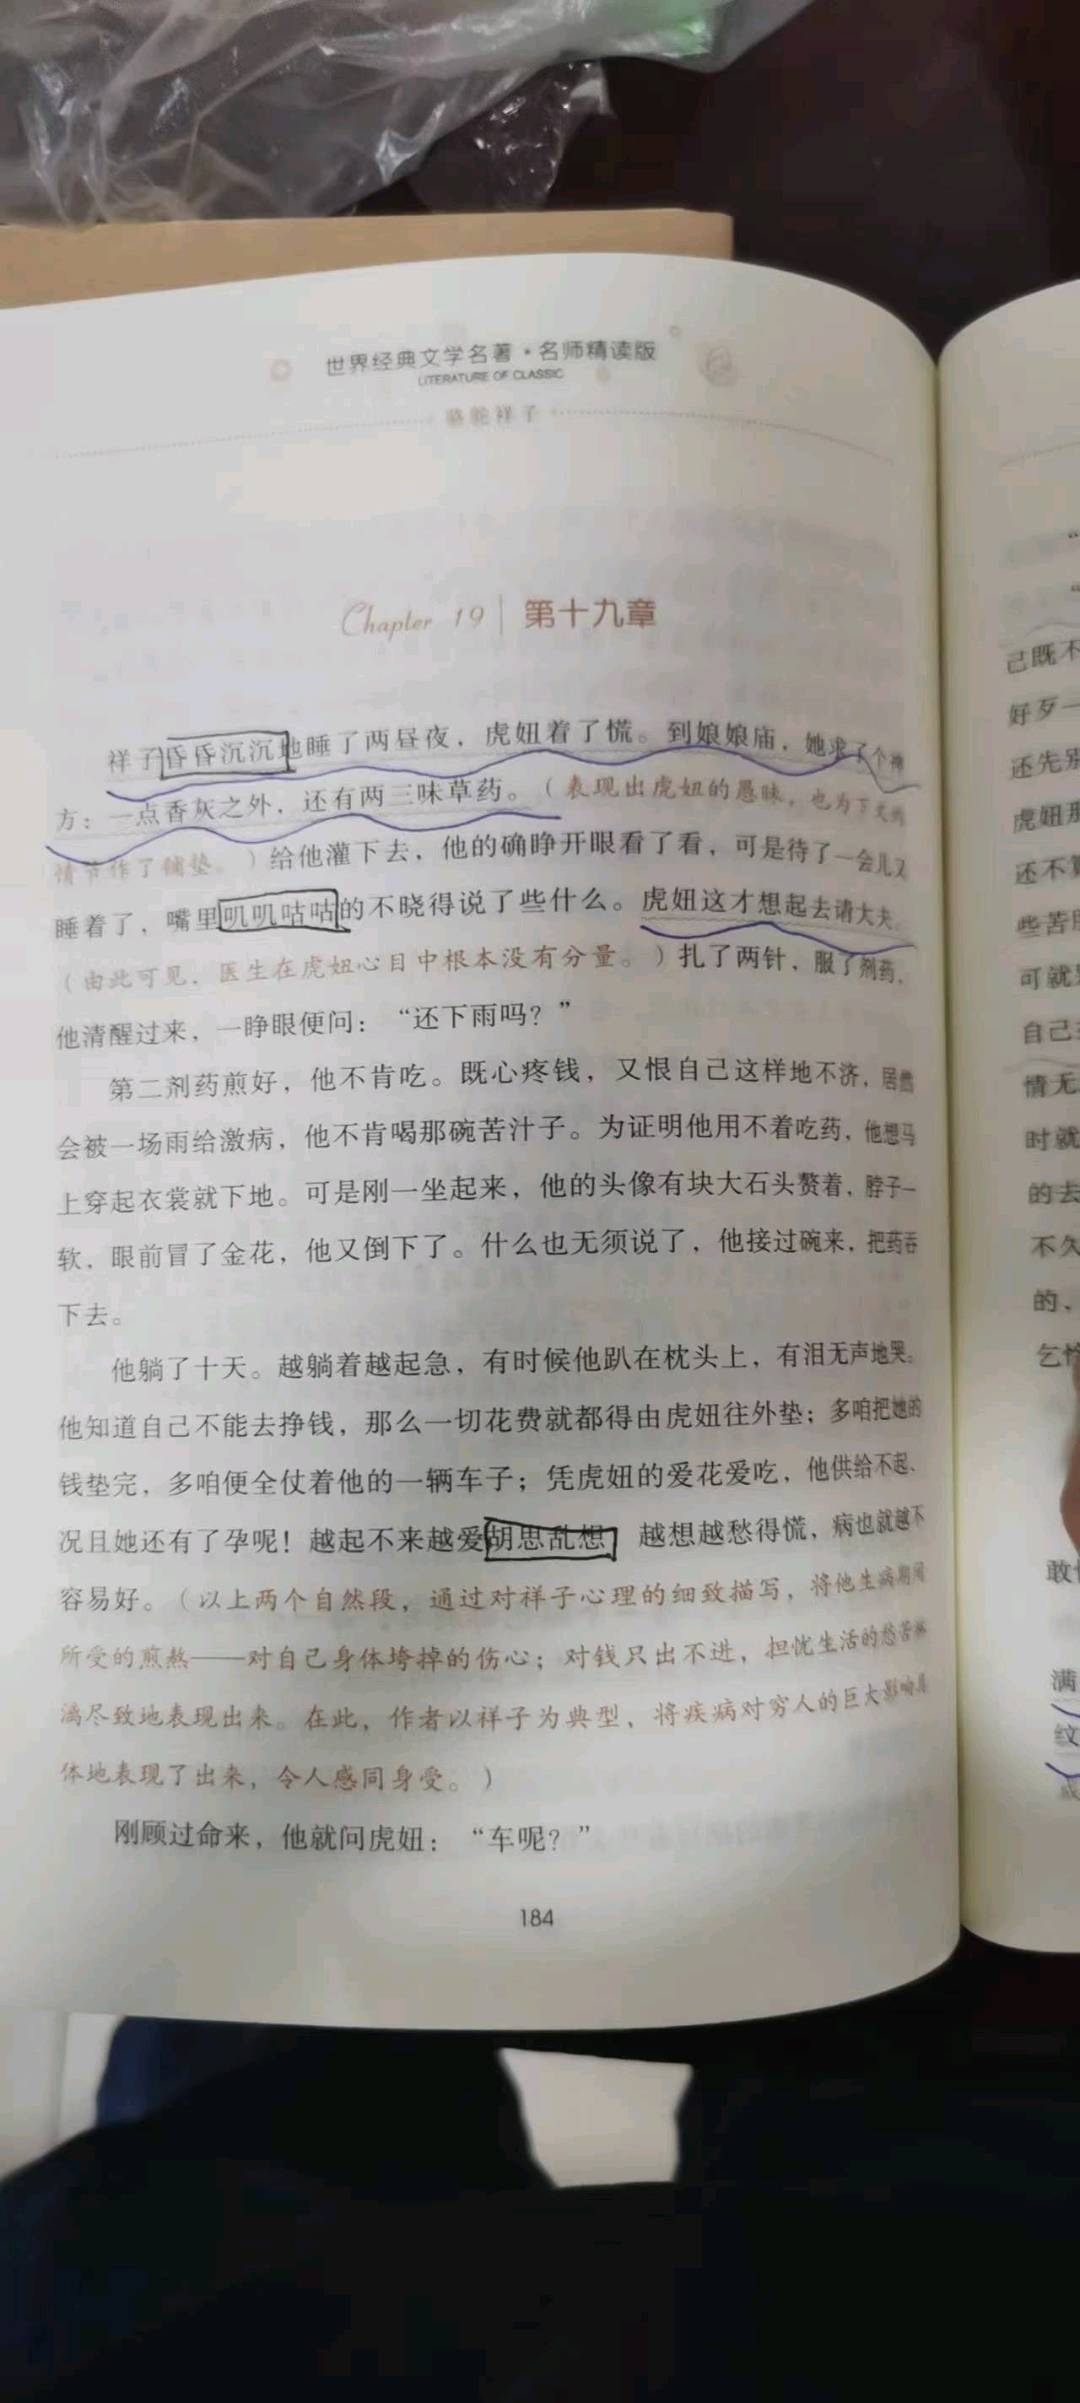 世界经典文学名著·名师精读版
LITERATURE OF CLASSIC
骆驼祥子
Chapter 19 | 第十九章
祥子昏昏沉沉地睡了两昼夜，虎妞着了慌。到娘娘庙，她求了个神
方：一点香灰之外，还有两三味草药。（表现出虎妞的愚昧，也为下文的
情节作了铺垫。）给他灌下去，他的确睁开眼看了看，可是待了一会儿又
睡着了，嘴里叽叽咕咕的不晓得说了些什么。虎妞这才想起去请大夫。
（由此可见，医生在虎妞心目中根本没有分量。）扎了两针，服了剂药，
他清醒过来，一睁眼便问：“还下雨吗？”
第二剂药煎好，他不肯吃。既心疼钱，又恨自己这样地不济，居然
会被一场雨给激病，他不肯喝那碗苦汁子。为证明他用不着吃药，他想马
上穿起衣裳就下地。可是刚一坐起来，他的头像有块大石头赘着，脖子一
软，眼前冒了金花，他又倒下了。什么也无须说了，他接过碗来，把药吞
下去。
他躺了十天。越躺着越起急，有时候他趴在枕头上，有泪无声地哭。
他知道自己不能去挣钱，那么一切花费就都得由虎妞往外垫；多咱把她的
钱垫完，多咱便全仗着他的一辆车子；凭虎妞的爱花爱吃，他供给不起，
况且她还有了孕呢！越起不来越爱胡思乱想，越想越愁得慌，病也就越不
容易好。（以上两个自然段，通过对祥子心理的细致描写，将他生病期间
所受的煎熬——对自己身体垮掉的伤心；对钱只出不进，担忧生活的愁苦淋
漓尽致地表现出来。在此，作者以祥子为典型，将疾病对穷人的巨大影响具
体地表现了出来，令人感同身受。）
刚顾过命来，他就问虎妞：“车呢？”
184
己既不
好歹一
还先别
虎妞那
还不算
些苦
可就
自己
情无
时就
的去
不久
的，
乞
敢
满
纹